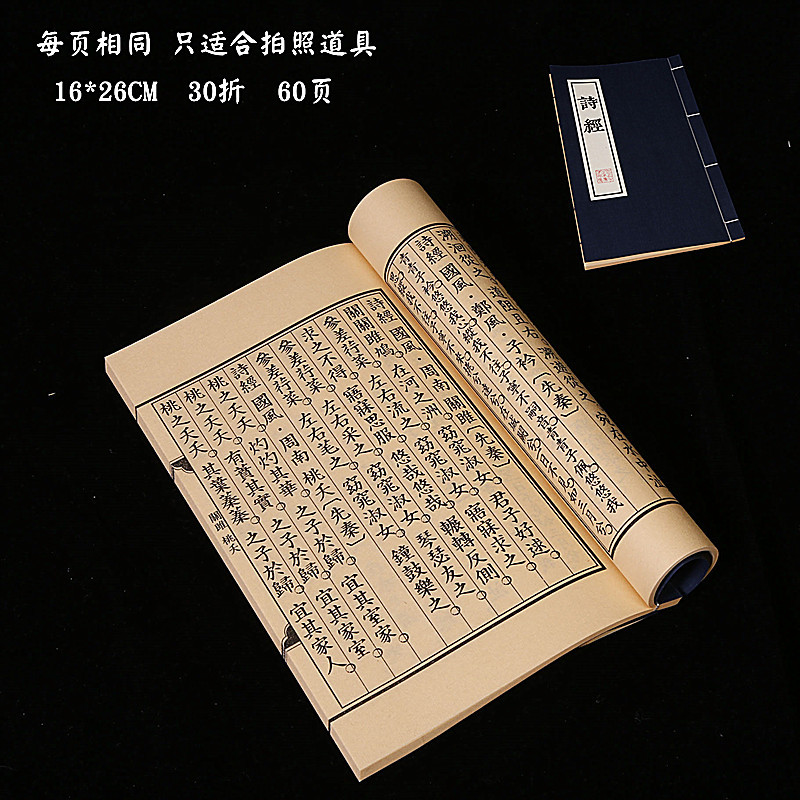 每页相同 只适合拍照道具
16*26CM 30折 60页
詩經
詩經 國風·鄭風·子衿(先秦)
詩經 國風·周南 關雎(先秦)
關關雎鳩。在河之洲。窈窕淑女。君子好逑。
參差荇菜。左右流之。窈窕淑女。寤寐求之。
求之不得。寤寐思服。悠哉悠哉。輾轉反側。
參差荇菜。左右采之。窈窕淑女。琴瑟友之。
參差荇菜。左右芼之。窈窕淑女。鐘鼓樂之。
詩經 國風·周南 桃夭(先秦)
桃之夭夭。灼灼其華。之子於歸。宜其室家。
桃之夭夭。有蕡其實。之子於歸。宜其家室。
桃之夭夭。其葉蓁蓁。之子於歸。宜其家人。
關雎 桃夭